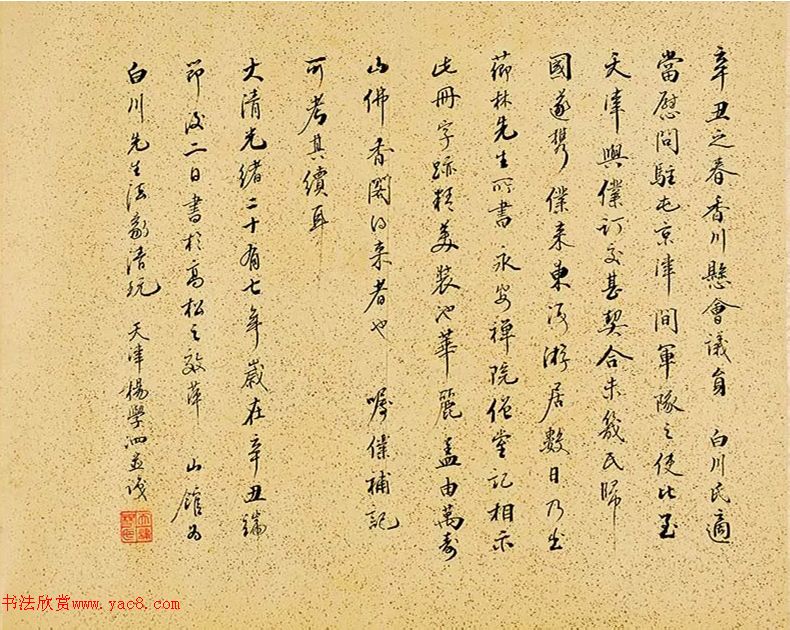 辛丑之春香川懸會議員 白川氏適
當慰問駐屯京津間軍隊之使比至
天津與僕訂交甚契合未幾氏歸
國遂攜僕来東汎游居數日乃出
薌林先生所書 永安禪院僧堂記相示
此册字跡精美裝池華麗蓋由萬壽
山佛香閣得来者也 嘱僕補記
可考其續耳
大清光緒二十有七年歲在辛丑端
節後二日書於高松之 山館為
白川先生法家清玩 天津楊學泗並識
书法欣赏www.yac8.com